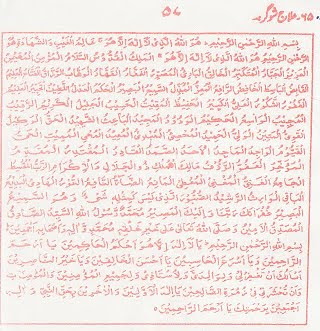 ۶۵۔ علاج شوگر ۵۷
بِسْمِ اللهِ الرَّحْمٰنِ الرَّحِيْمِ هُوَ اللهُ الَّذِىْ لَآ اِلٰهَ اِلَّا هُوَ عَالِمُ الْغَيْبِ وَالشَّهَادَةِ هُوَ
الرَّحْمٰنُ الرَّحِيْمُ هُوَ اللهُ الَّذِىْ لَآ اِلٰهَ اِلَّا هُوَ الْمَلِكُ الْقُدُّوْسُ السَّلَامُ الْمُؤْمِنُ الْمُهَيْمِنُ
الْعَزِيْزُ الْجَبَّارُ الْمُتَكَبِّرُ الْخَالِقُ الْبَارِئُ الْمُصَوِّرُ الْغَفَّارُ الْقَهَّارُ الْوَهَّابُ الرَّزَّاقُ الْفَتَّاحُ الْعَلِيْمُ
الْقَابِضُ الْبَاسِطُ الْخَافِضُ الرَّافِعُ الْمُعِزُّ الْمُذِلُّ السَّمِيْعُ الْبَصِيْرُ الْحَكَمُ الْعَدْلُ اللَّطِيْفُ الْخَبِيْرُ الْحَلِيْمُ الْعَظِيْمُ
الْغَفُوْرُ الشَّكُوْرُ الْعَلِىُّ الْكَبِيْرُ الْحَفِيْظُ الْمُقِيْتُ الْحَسِيْبُ الْجَلِيْلُ الْكَرِيْمُ الرَّقِيْبُ
الْمُجِيْبُ الْوَاسِعُ الْحَكِيْمُ الْوَدُوْدُ الْمَجِيْدُ الْبَاعِثُ الشَّهِيْدُ الْحَقُّ الْوَكِيْلُ
الْقَوِىُّ الْمَتِيْنُ الْوَلِىُّ الْحَمِيْدُ الْمُحْصِى الْمُبْدِئُ الْمُعِيْدُ الْمُحْىِ الْمُمِيْتُ الْحَىُّ
الْقَيُّوْمُ الْوَاجِدُ الْمَاجِدُ الْاَحَدُ الصَّمَدُ الْقَادِرُ الْمُقْتَدِرُ الْمُقَدِّمُ
الْعَفُوُّ الرَّءُوْفُ مَالِكُ الْمُلْكِ ذُو الْجَلَالِ وَالْاِكْرَامِ الرَّبُّ الْمُقْسِطُ
الْجَامِعُ الْغَنِىُّ الْمُغْنِى الْمُعْطِى الْمَانِعُ الضَّآرُّ النَّافِعُ النُّوْرُ الْهَادِى الْبَدِيْعُ
الْبَاقِى الْوَارِثُ الرَّشِيْدُ الصَّبُوْرُ الَّذِىْ لَيْسَ كَمِثْلِهٖ شَىْءٌ وَ هُوَ السَّمِيْعُ
الْبَصِيْرُ غُفْرَانَكَ رَبَّنَا وَ اِلَيْكَ الْمَصِيْرُ مُحَمَّدٌ رَّسُوْلُ اللهِ الصَّادِقُ
بِسْمِ اللهِ الرَّحْمٰنِ الرَّحِيْمِ يَا لَآ اِلٰهَ اِلَّا هُوَ اَحْكَمُ الْحَاكِمِيْنَ يَا اَرْحَمَ
الرَّاحِمِيْنَ وَ يَا اَسْرَعَ الْحَاسِبِيْنَ يَا اَحْسَنَ الْخَالِقِيْنَ وَ يَا خَيْرَ النَّاصِرِيْنَ
اَسْاَلُكَ اَنْ تَغْفِرَلِىْ وَ لِوَالِدَىَّ وَ لِاُسْتَاذِىْ وَ لِجَمِيْعِ الْمُؤْمِنِيْنَ وَ الْمُؤْمِنَاتِ
وَ اَنْ تَحْشُرَنِىْ فِىْ زُمْرَةِ الصَّالِحِيْنَ يَا اِلٰهَ الْاَوَّلِيْنَ وَ الْاٰخِرِيْنَ بِحَقِّ
اَجْمَعِيْنَ بِرَحْمَتِكَ يَا اَرْحَمَ الرَّاحِمِيْنَ